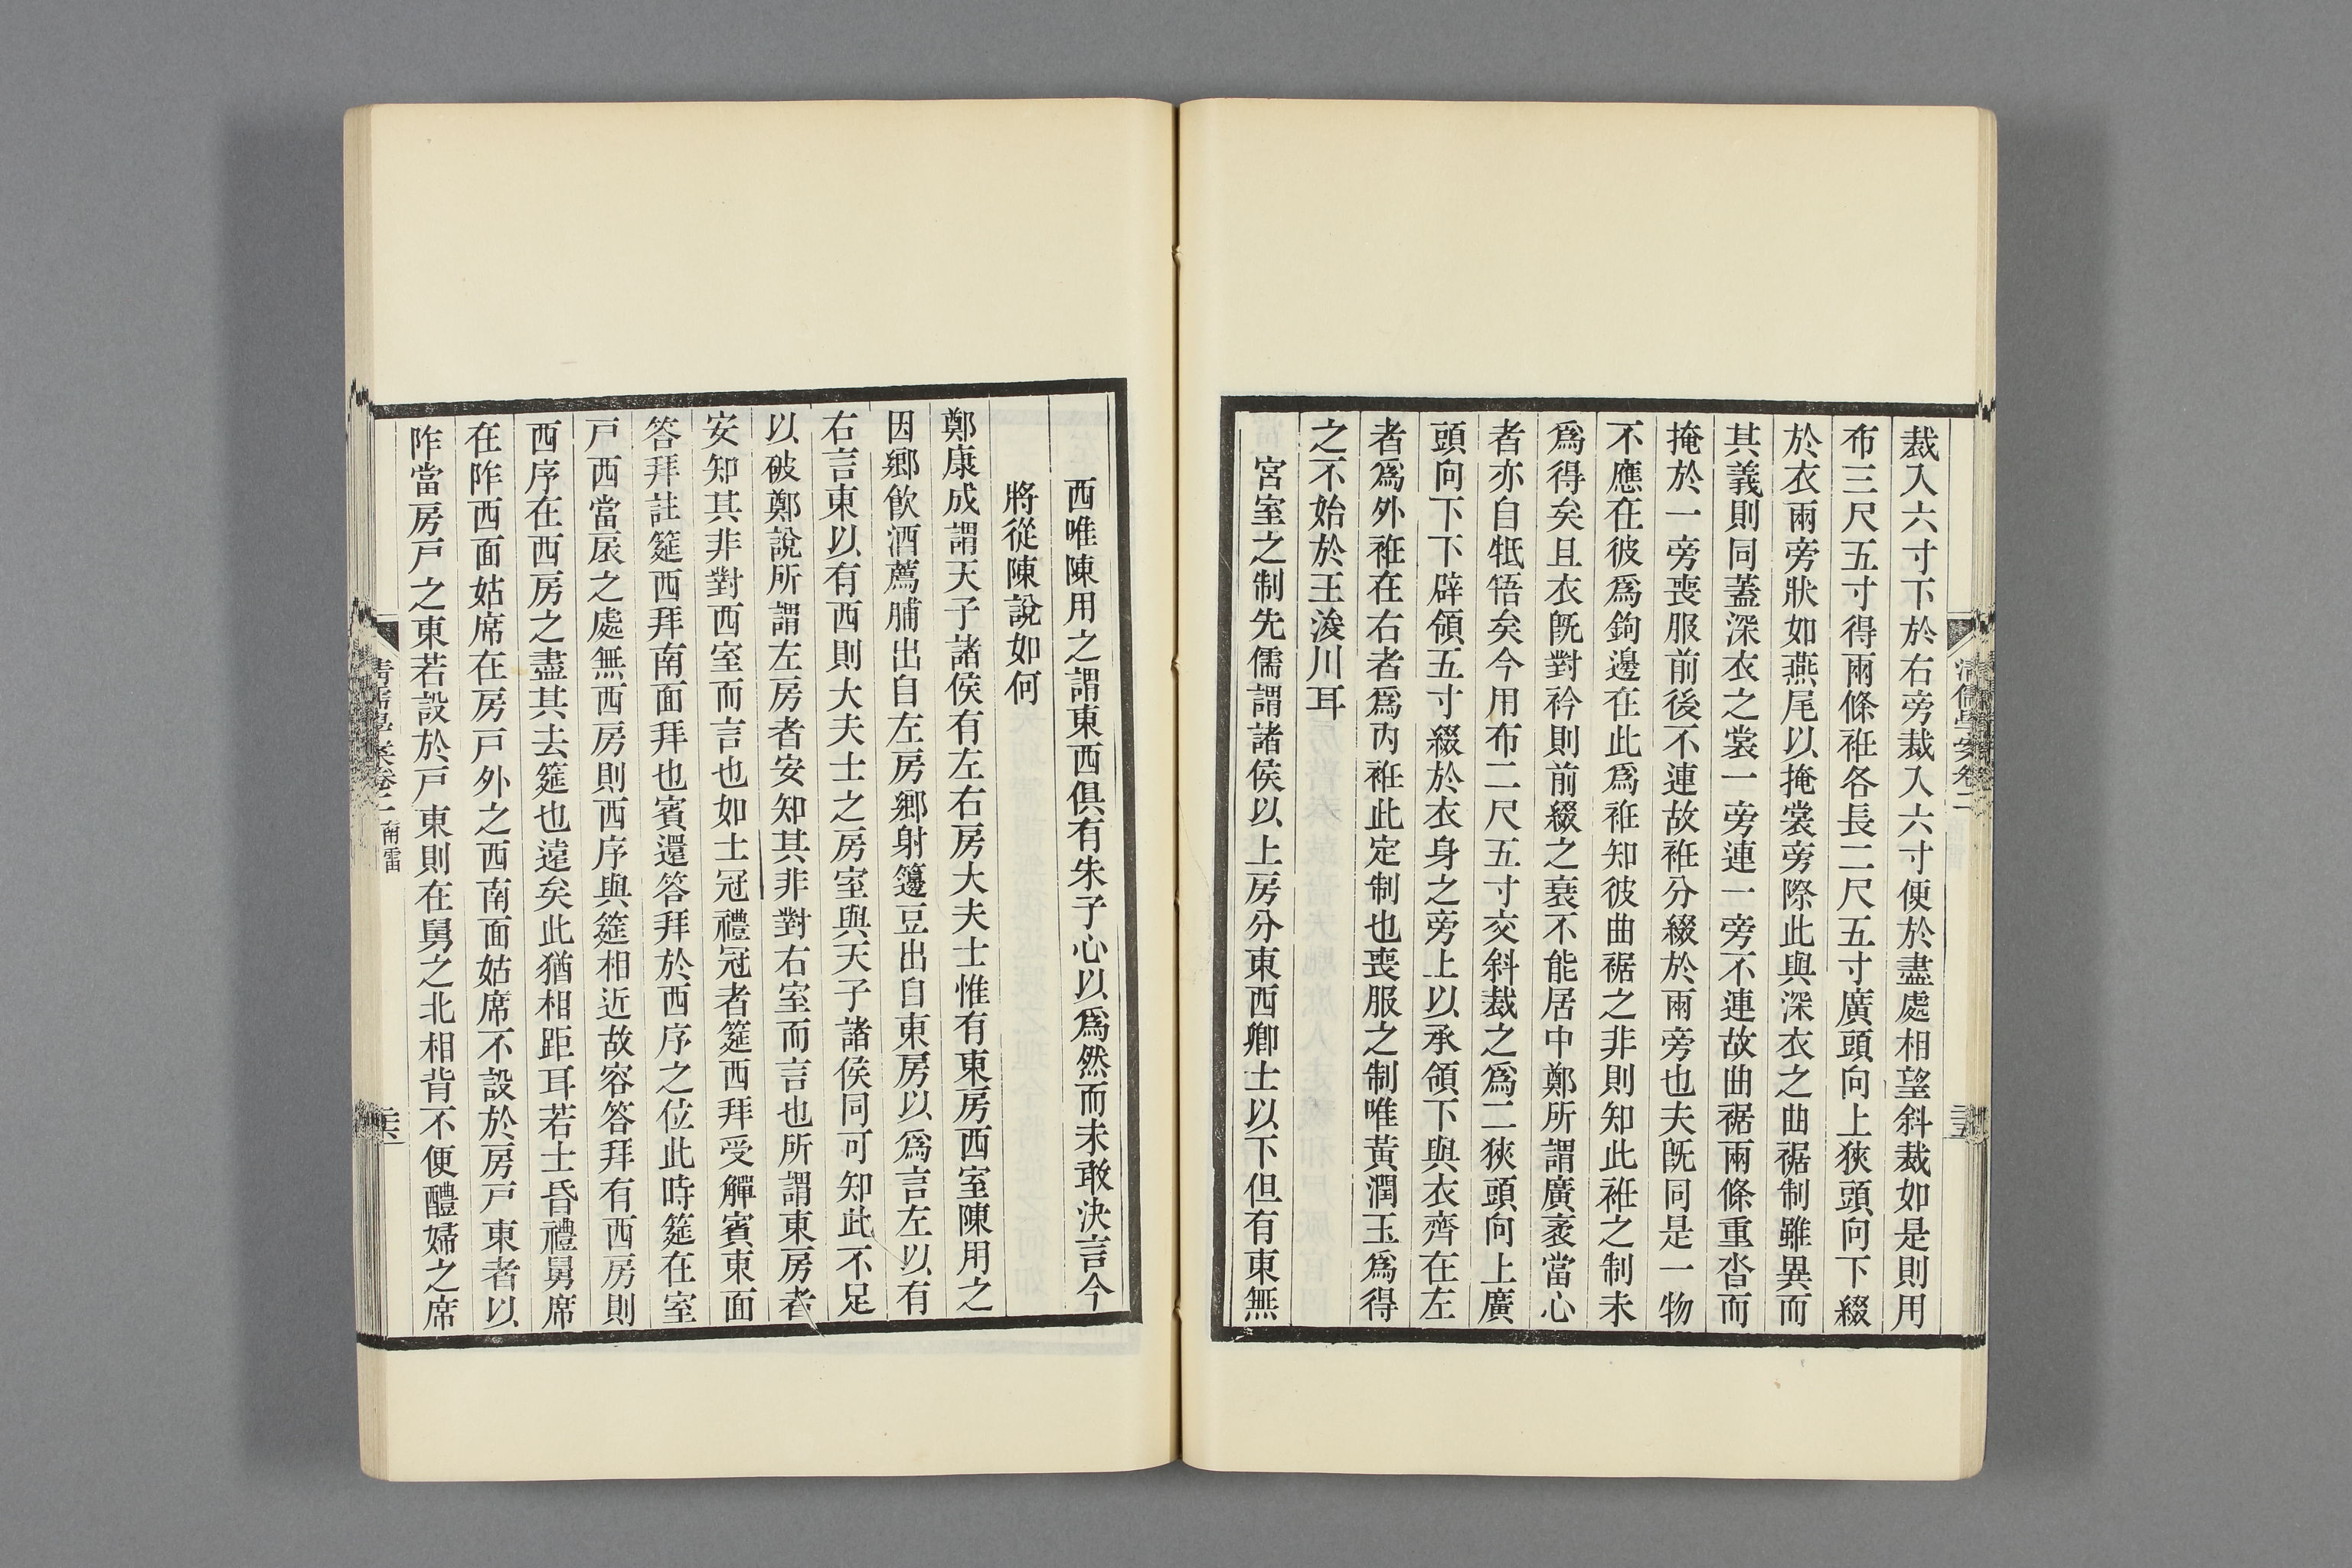 裁入六寸下於右旁裁入六寸便於盡處相望斜裁如是則用
布三尺五寸得兩條衽各長二尺五寸廣頭向上狹頭向下綴
於衣兩旁狀如燕尾以掩裳旁際此與深衣之曲裾制雖異而
其義則同蓋深衣之裳一旁連一旁不連故曲裾兩條重沓而
掩於一旁喪服前後不連故衽分綴於兩旁也夫旣同是一物
不應在彼爲鉤邊在此爲衽知彼曲裾之非則知此衽之制未
爲得矣且衣旣對衿則前綴之衰不能居中鄭所謂廣袤當心
者亦自牴牾矣今用布二尺五寸交斜裁之爲二狹頭向上廣
頭向下下辟領五寸綴於衣身之旁上以承領下與衣齊在左
者爲外衽在右者爲內衽此定制也喪服之制唯黃潤玉爲得
之不始於王浚川耳
宮室之制先儒謂諸侯以上房分東西卿士以下但有東無
清儒學案卷二
三五
西唯陳用之謂東西俱有朱子心以爲然而未敢決言今
將從陳說如何
鄭康成謂天子諸侯有左右房大夫士惟有東房西室陳用之
因鄉飲酒薦脯出自左房鄉射籩豆出自東房以爲言左以有
右言東以有西則大夫士之房室與天子諸侯同可知此不足
以破鄭說所謂左房者安知其非對右室而言也所謂東房者
安知其非對西室而言也如士冠禮冠者筵西拜受觶賓東面
答拜註筵西拜南面拜也賓還答拜於西序之位此時筵在室
戸西當扆之處無西房則西序與筵相近故容答拜有西房則
西序在西房之盡其去筵也遠矣此猶相距耳若士昏禮舅席
在阼西面姑席在房戸外之西南面姑席不設於房戸東者以
阼當房戸之東若設於戸東則在舅之北相背不便醴婦之席
清儒學案卷二 南雷
三六